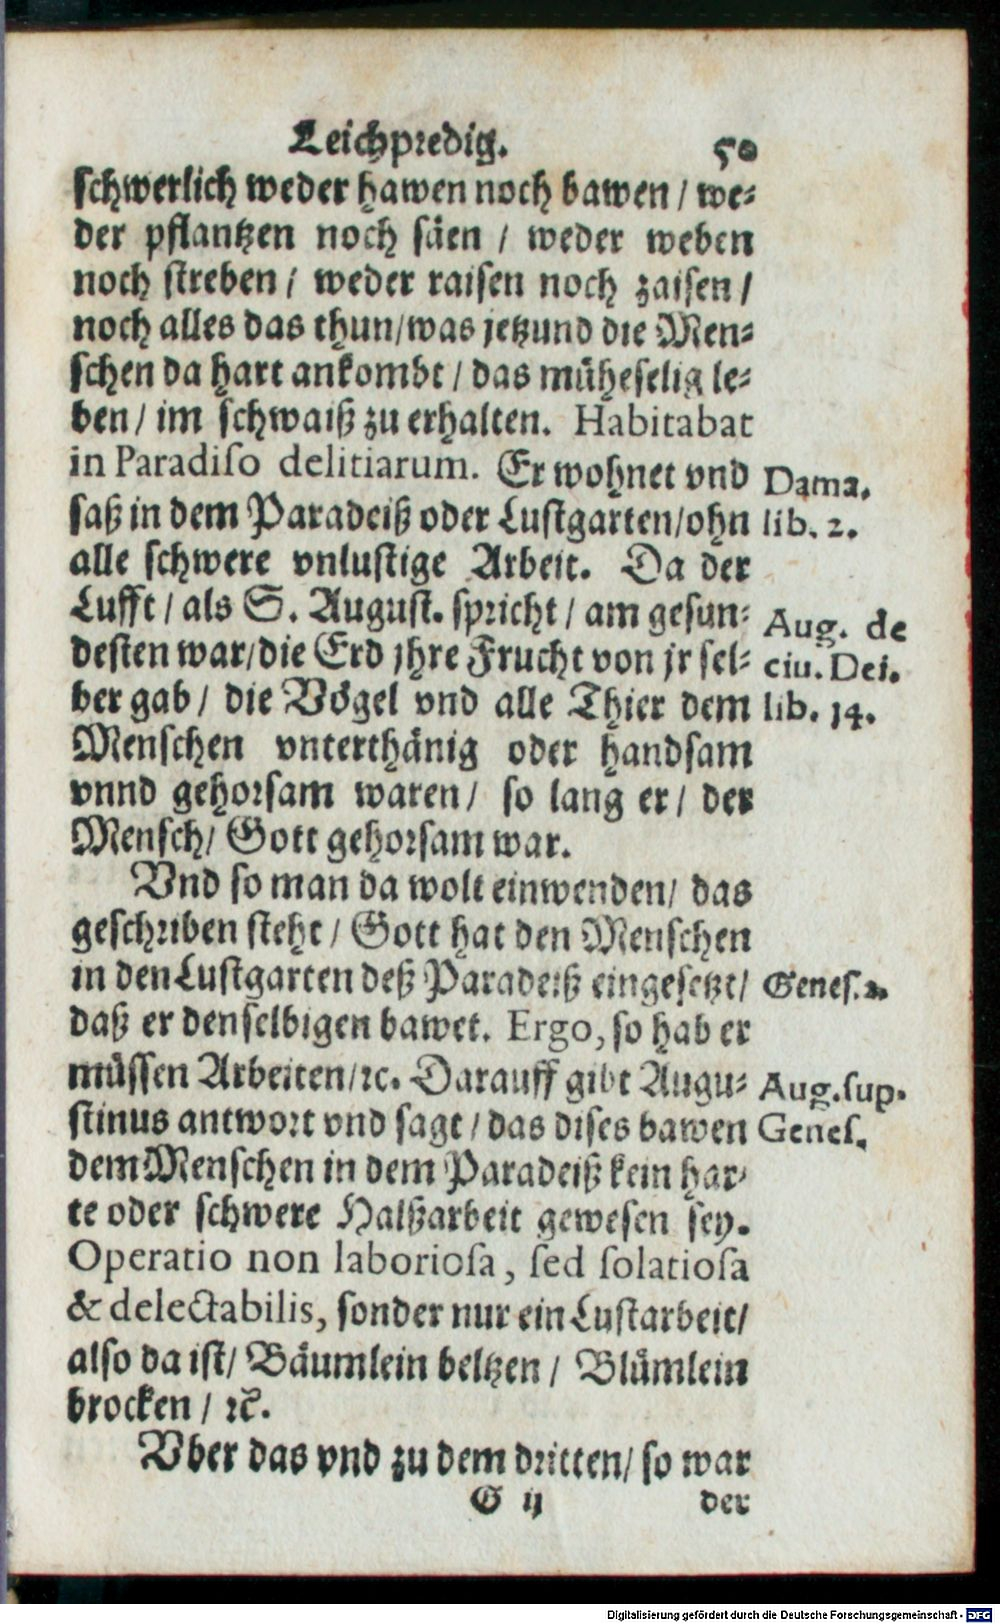 Leichpredig. 50
schwerlich weder hawen noch bawen / we-
der pflantzen noch säen / weder weben
noch streben / weder raisen noch zaisen /
noch alles das thun / was jetzund die Men-
schen da hart ankombt / das müheselig le-
ben / im schwaiß zu erhalten. Habitabat
in Paradiso delitiarum. Er wohnet vnd
Dama.
saß in dem Paradeiß oder Lustgarten / ohn
lib. 2.
alle schwere vnlustige Arbeit. Da der
Lufft / als S. August. spricht / am gesun-
Aug. de
desten war / die Erd jhre Frucht von jr sel-
ciu. Dei.
ber gab / die Vögel vnd alle Thier dem
lib. 14.
Menschen vnterthänig oder handsam
vnnd gehorsam waren / so lang er / der
Mensch / Gott gehorsam war.
Vnd so man da wolt einwenden / das
geschriben steht / Gott hat den Menschen
in den Lustgarten deß Paradeiß eingesetzt /
Genes. 2.
daß er denselbigen bawet. Ergo, so hab er
müssen Arbeiten / ꝛc. Darauff gibt Augu-
Aug. sup.
stinus antwort vnd sagt / das dises bawen
Genes.
dem Menschen in dem Paradeiß kein har-
te oder schwere Halßarbeit gewesen sey.
Operatio non laboriosa, sed solatiosa
& delectabilis, sonder nur ein Lustarbeit /
also da ist / Bäumlein beltzen / Blümlein
brocken / ꝛc.
Vber das vnd zu dem dritten / so war
G ij der
Digitalisierung gefördert durch die Deutsche Forschungsgemeinschaft - DFG